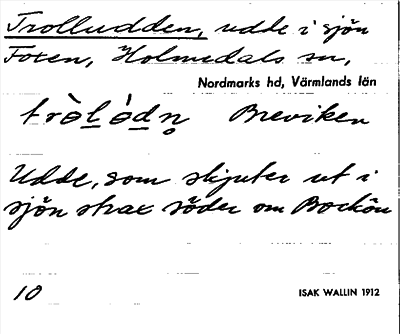 Trolludden, udde i sjön
Foxen, Holmedals sn,
Nordmarks hd, Värmlands län
trò̀l̲ ó̀d̲n̥ Breviken
Udde, som skjuter ut i
sjön strax söder om Bockön
10 ISAK WALLIN 1912